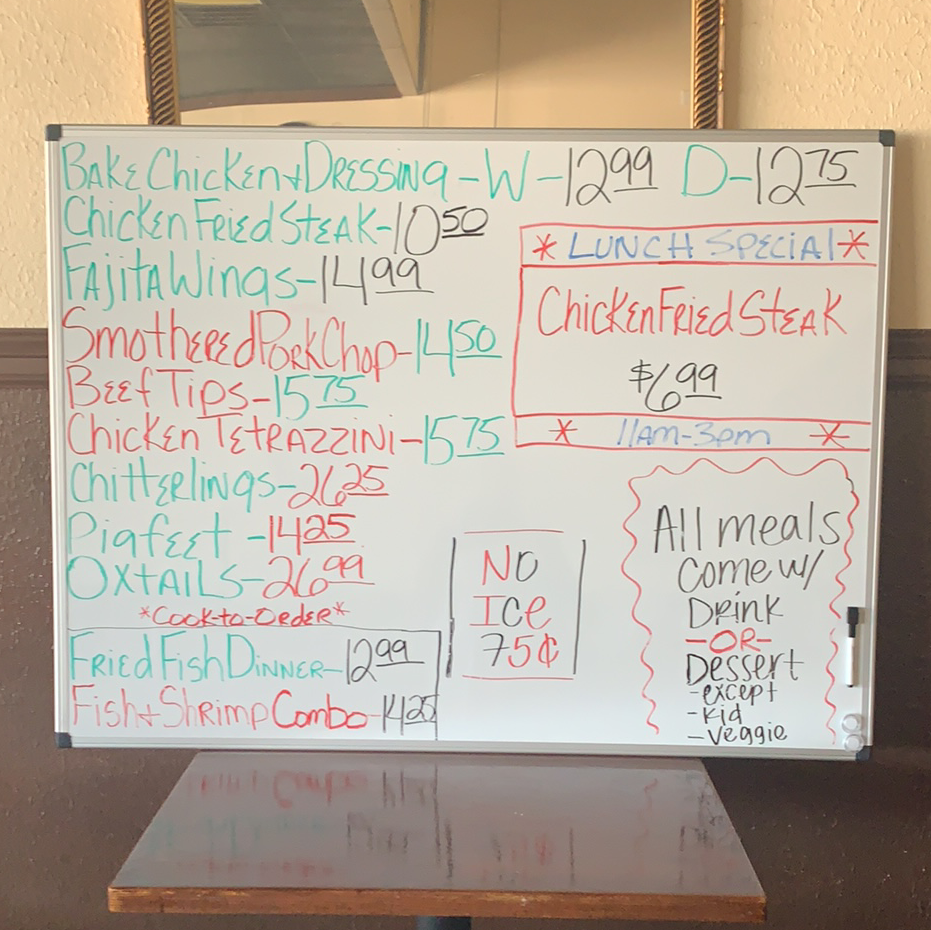 BAKE Chicken + DRESSING - W - 12.99 D - 12.75
Chicken Fried STEAK - 10.50
FAJITA Wings - 14.99
Smothered Pork Chop - 14.50
Beef Tips - 15.75
Chicken TETRAZZINI - 15.75
Chitterlings - 26.25
Pigfeet - 14.25
OXTAILS - 26.99
*Cook-to-Order*
Fried Fish Dinner - 12.99
Fish + Shrimp Combo - 14.25
* LUNCH SPECIAL *
Chicken Fried STEAK
$6.99
* 11AM - 3pm *
NO
ICE
75¢
All meals
Come w/
Drink
-OR-
Dessert
-except
-Kid
-Veggie